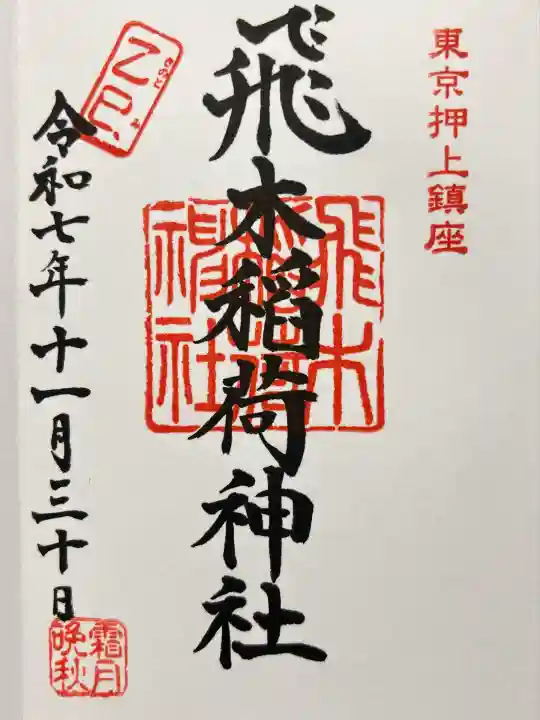 東京押上鎮座
飛木稲荷神社
飛木
稲荷
神社
乙巳
きのと
み
令和七年十一月三十日
霜月
晩秋